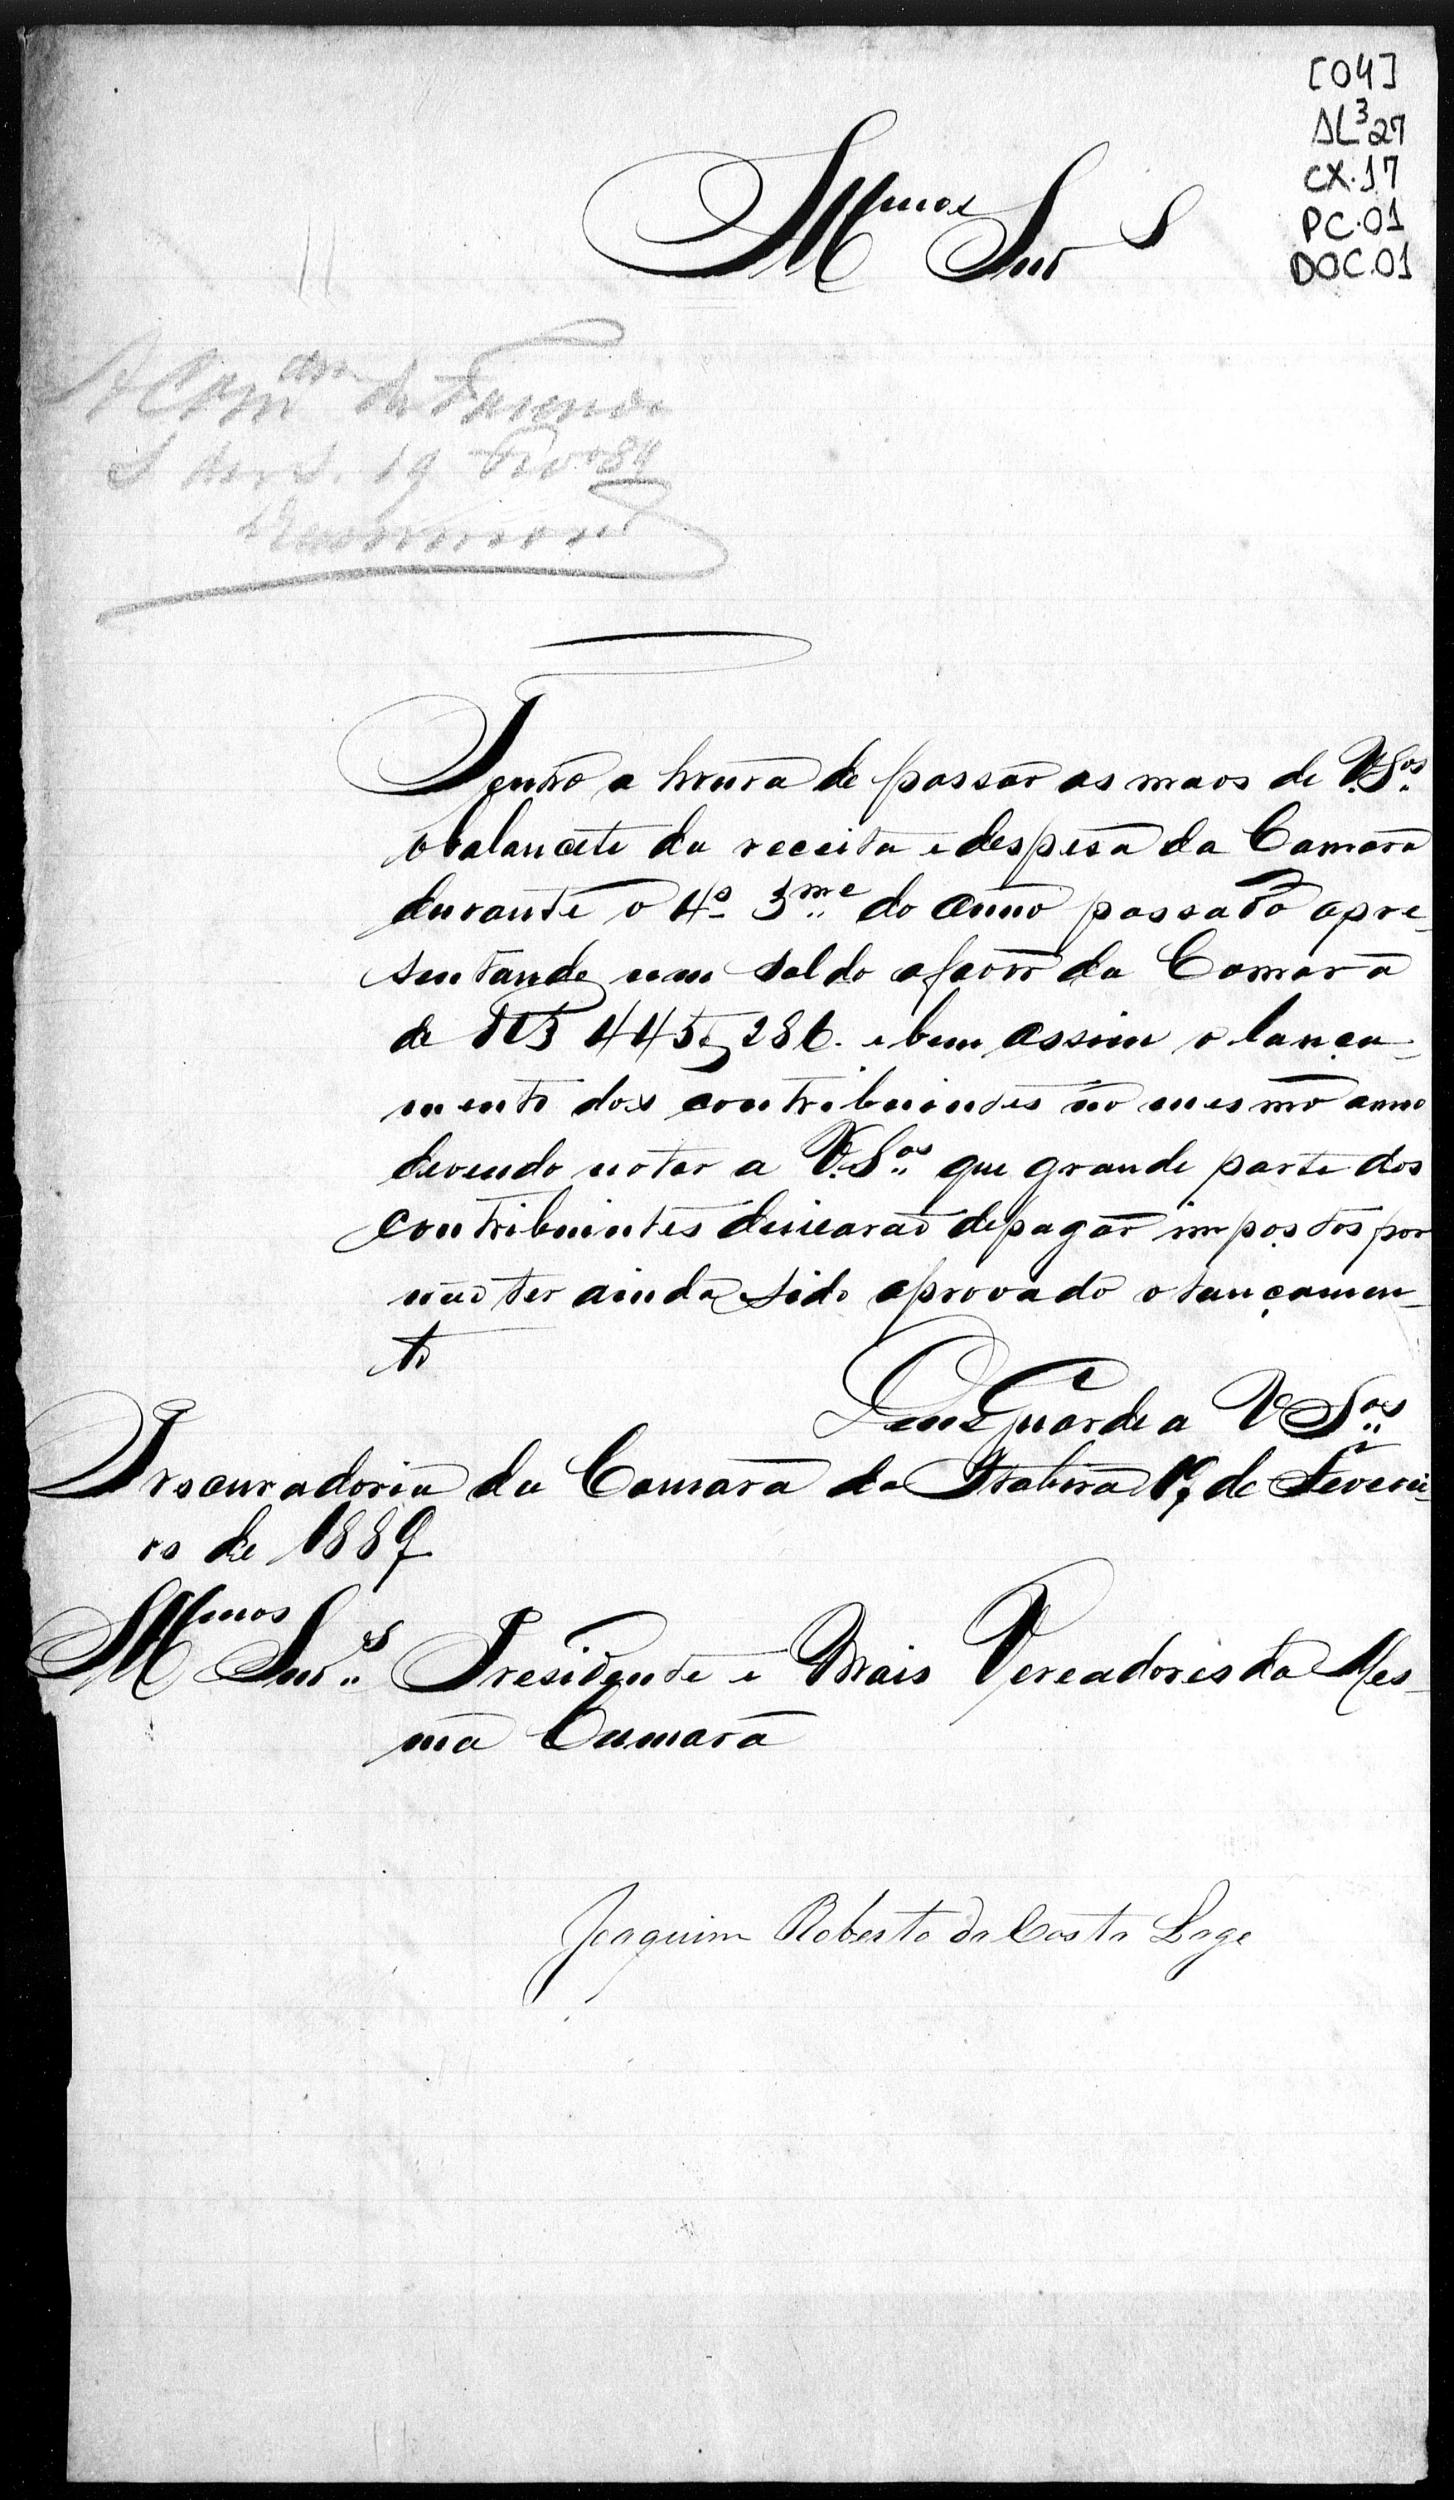 [04]
AL³27
CX.17
PC.01
DOC.01
Illmos Snrs
A Comam da Fazenda
S das S. 19 Fevro 89
Drummond
Tenho a honra de passar as maos de V.Sas
o balancete da receita e despesa da Camara
durante o 4o 3me do anno passado apre-
sentando um saldo afavor da Camara
de RS 445$286. e bem assim o lança-
mento dos contribuintes no mesmo anno
devendo notar a V.Sas que grande parte dos
contribuintes deicarao de pagar impostos por
não ter ainda sido aprovado o lançamen-
to
Deus Guarde a V Sas
Procuradoria da Camara da Itabira 17 de Feverei-
ro de 1889
Illmos Snres Presidente e Mais Vereadores da Mes-
ma Camara
Joaquim Roberto da Costa Lage